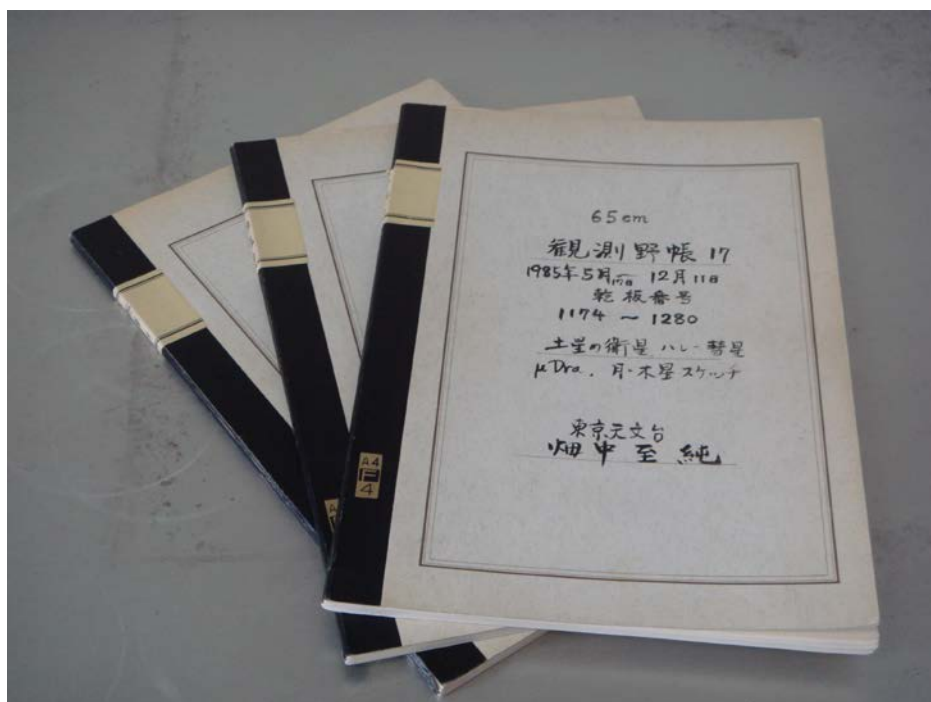 65cm
観測野帳 17
1985年5月17日 12月11日
乾板番号
1174 ~ 1280
土星の衛星 ハレー彗星
μDra. 月・木星スケッチ
東京天文台
畑中至純
A4
F
4
A4